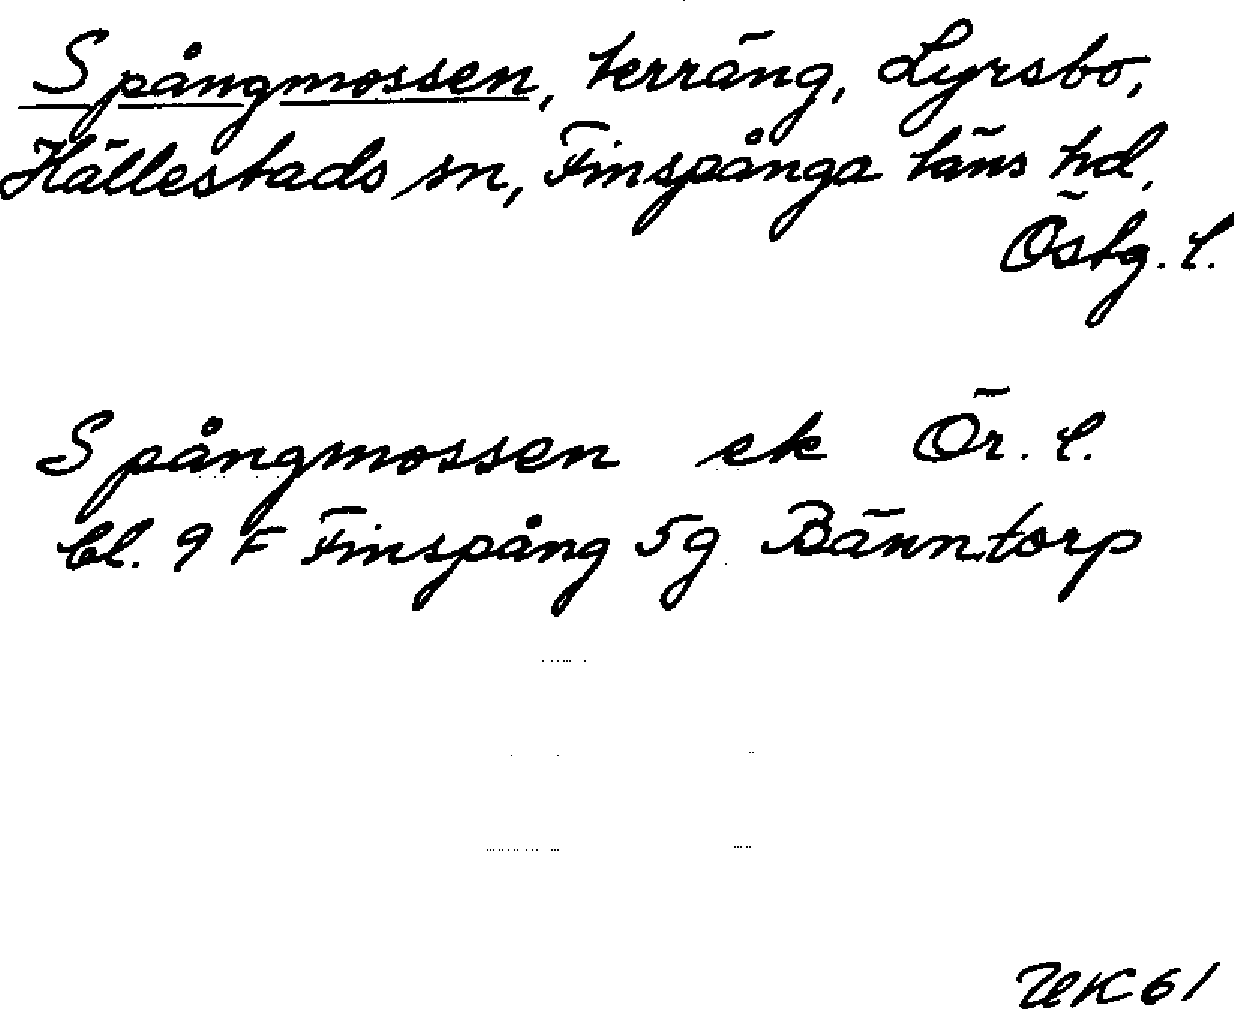 Spångmossen, terräng, Lyrsbo,
Hällestads sn, Finspånga läns hd,
Östg. l.
Spångmossen ek Ör. l.
bl. 9 F Finspång 5g Bänntorp
UK61